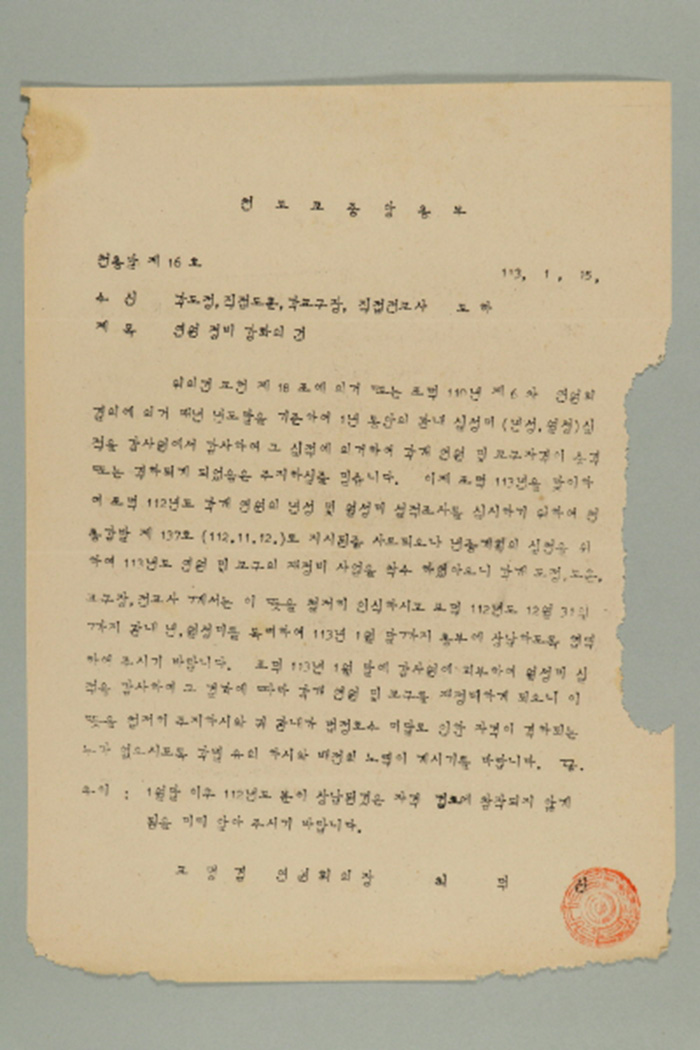 천도교중앙총부
천총발 제 16 호
113, 1, 15,
수 신 각도정, 직접도훈, 각교구장, 직접전교사 도 하
제 목 연원 정비 강화의 건
위의건 교헌 제 18 조에 의거 또는 포덕 110년 제 6 차 연원회
결의에 의거 매년 년도말을 기준하여 1년 동안의 관내 성미 (년성, 월성)실
적을 감사원에서 감사하여 그 실적에 의거하여 각개 연원 및 교구자격이 승격
또는 격하되게 되었음은 주지하실줄 믿습니다. 이제 포덕 113년을 맞이하
여 포덕 112년도 각개 연원의 년성 및 월성미 실적조사를 실시하기 위하여 천
총감발 제 137호 (112.11.12.)로 지시된줄 사료되오나 년중계획의 실천을 위
하여 113년도 연원 및 교구의 재정비 사업을 착수 하였아오니 각개 도정, 도훈,
교구장, 전교사 께서는 이 뜻을 철저히 인식하시고 포덕 112년도 12월 31일
까지 관내 년, 월성미를 독려하여 113년 1월 말까지 총부에 상납하도록 협력
하여 주시기 바랍니다. 포덕 113년 1월 말에 감사원에 회부하여 월성미 실
적을 감사하여 그 결과에 따라 각개 연원 및 교구를 재정비하게 되오니 이
뜻을 철저히 주지하시와 귀 관내가 법정호수 미달로 인한 자격이 격하되는
누가 없으시도록 각별 유의 하시와 배전의 노력이 계시기를 바랍니다. 끝.
추이 : 1월말 이후 112년도 분이 상납된것은 자격 검토에 참작되지 않게
됨을 미리 알아 주시기 바랍니다.
교령겸 연원회의장 최 덕 신